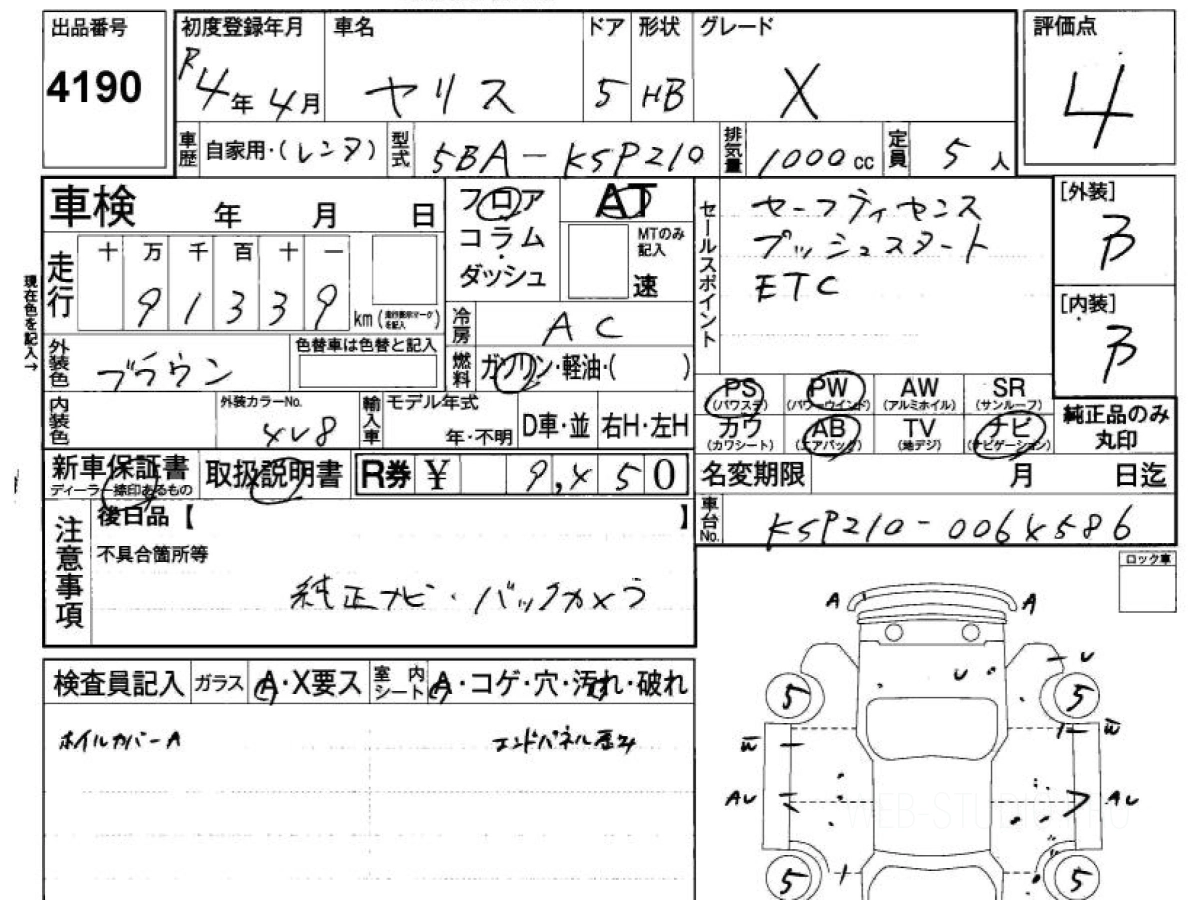 出品番号 初度登録年月 車名 ドア 形状 グレード 評価点
4190 R4年4月 ヤリス 5 HB X 4
車歴 自家用・(レンタ) 型式 5BA-KSP210 排気量 1000cc 定員 5人
車検 年 月 日 フロア AT セールスポイント セーフティセンス [外装]
コラム・ MTのみ記入 プッシュスタート B
走行 十 万 千 百 十 一 ダッシュ 速 ETC [内装]
91339 km (走行表示マークを記入) 冷房 AC B
現在色を記入→
外装色 ブラウン 色替車は色替と記入 燃料 ガソリン・軽油・( )
PS PW AW SR
(パワステ) (パワーウインド) (アルミホイル) (サンルーフ)
内装色 外装カラーNo. 4V8 輸入車 モデル年式 年・不明 D車・並 右H・左H
カワ AB TV ナビ 純正品のみ
(カワシート) (エアバック) (地デジ) (ナビゲーション) 丸印
新車保証書 取扱説明書 R券 ¥ 9,450 名変期限 月 日迄
ディーラー捺印あるもの
注意事項 後日品【 】 車台No. KSP210-0064586
不具合箇所等
純正ナビ・バックカメラ
ロック車
A A
検査員記入 ガラス A・X要ス 室内シート A・コゲ・穴・汚れ・破れ
U U
5 5
ホイルカバーA エンドパネル歪み
W W
AU AU
WEB-STUDIO.PRO
5 5